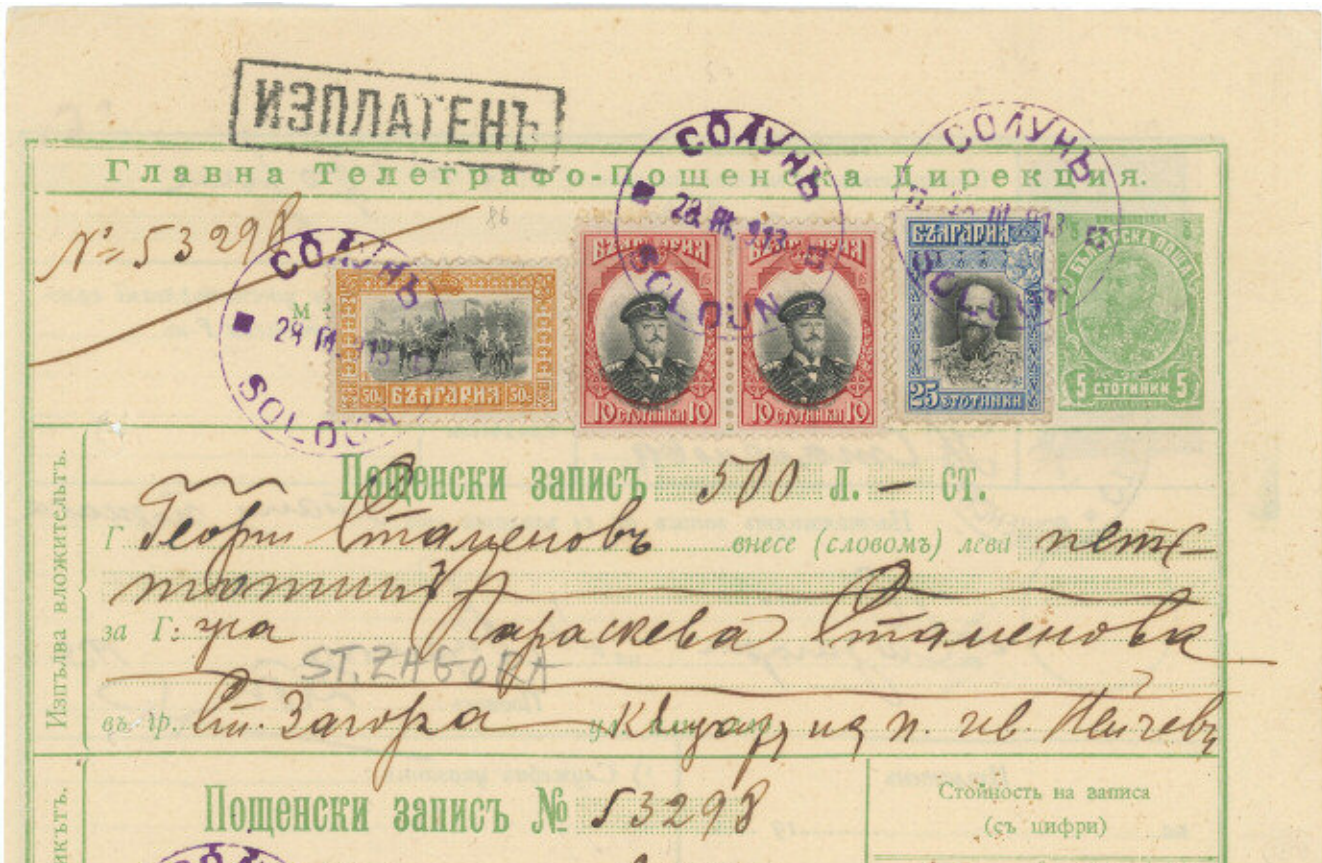 ИЗПЛАТЕНЪ
Главна Телеграфо-Пощенска Дирекция.
№ 53298
98
СОЛУНЪ
28 III. 913
SOLOUN
СОЛУНЪ
28 III. 913
SOLOUN
СОЛУНЪ
III. 913
SOLOUN
50с БЪЛГАРИЯ 50с
БЪЛГАРИЯ
10 СТОТИНКИ 10
БЪЛГАРИЯ
10 СТОТИНКИ 10
БЪЛГАРИЯ
25 СТОТИНКИ
БЪЛГАРСКА ПОЩА
5 СТОТИНКИ 5
Изпълва вложительтъ.
Пощенски записъ 500 л. – ст.
Г Георги Стаменовъ внесе (словомъ) лева петь
стотинъ
за Г: жа Параскева Стаменова
ST.ZAGORA
въ гр. Ст. Загора ул. на п. Ив.
Пощенски записъ № 53298
Стойность на записа
(съ цифри)